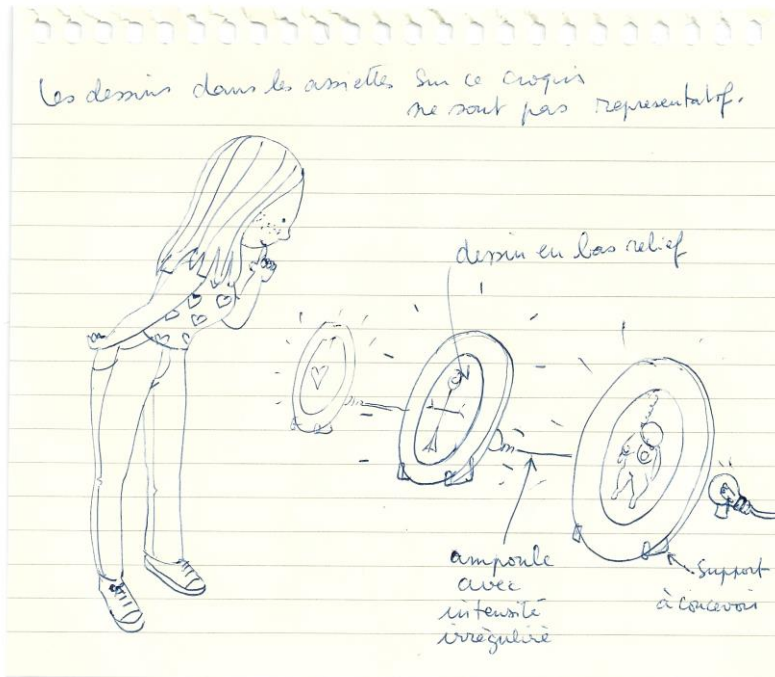 Les dessins dans les assiettes sur ce croquis
ne sont pas representatif.
dessin en bas relief
ampoule
avec
intensité
irrégulière
Support
à concevoir